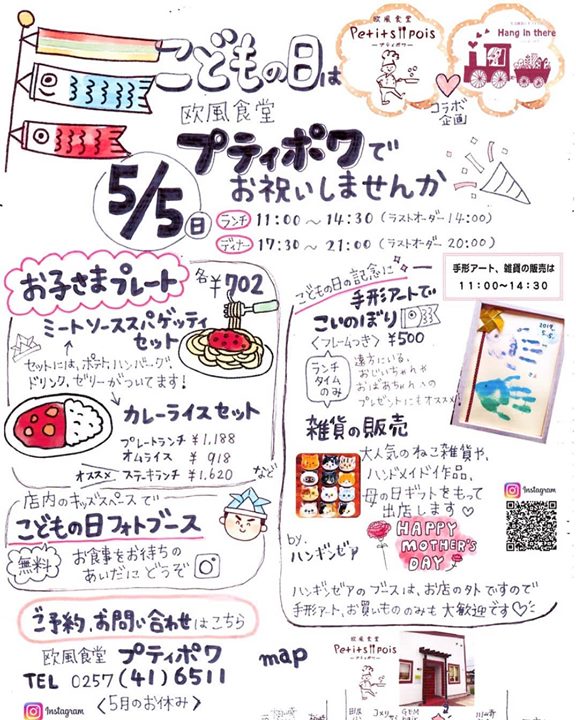 こどもの日は
欧風食堂
Petits pois
ープティポワー
Hang in there
コラボ
企画
欧風食堂
プティポワで
お祝いしませんか
5/5日
ランチ 11:00～14:30（ラストオーダー14:00）
ディナー 17:30～21:00（ラストオーダー20:00）
お子さまプレート 各¥702
ミートソーススパゲッティ
セット
セットには、ポテト、ハンバーグ、
ドリンク、ゼリーがついてます！
カレーライスセット
プレートランチ ¥1,188
オムライス ¥ 918
オススメ ステーキランチ ¥1,620 など
店内のキッズスペースで
こどもの日フォトブース
無料
お食事をお待ちの
あいだにどうぞ
手形アート、雑貨の販売は
11:00～14:30
こどもの日の記念に
手形アートで
こいのぼり
〈フレームつき〉¥500
ランチ
タイム
のみ
遠方にいる、
おじいちゃんや
おばあちゃんへの
プレゼントにもオススメ
2019.
5.5.
雑貨の販売
大人気のねこ雑貨や、
ハンドメイド作品、
母の日ギフトをもって
出店します♡
by.
ハンギンゼア
HAPPY
MOTHER'S
DAY
Instagram
ハンギンゼアのブースは、お店の外ですので
手形アート、お買いもののみも大歓迎です♡
ご予約、お問い合わせはこちら
欧風食堂 プティポワ
TEL 0257 (41) 6511
Instagram
〈5月のお休み〉
map
欧風食堂
Petits pois
ープティポワー
コメリ
GEO